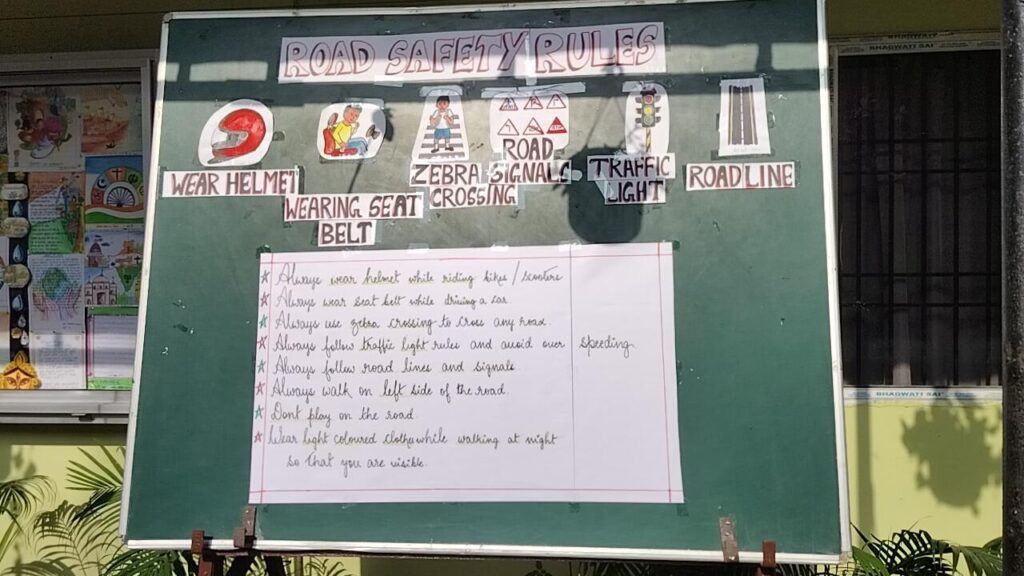 ROAD SAFETY RULES
WEAR HELMET
WEARING SEAT
BELT
ZEBRA
CROSSING
ROAD
SIGNALS
TRAFFIC
LIGHT
ROAD LINE
Always wear helmet while riding bikes / scooters
Always wear seat belt while driving a car
Always use zebra crossing to cross any road.
Always follow traffic light rules and avoid over speeding
Always follow road lines and signals.
Always walk on left side of the road.
Dont play on the road
Wear light coloured clothe while walking at night
so that you are visible.
BHAGWATI SAI
BHAGWATI SAI
BHAGWATI SAI